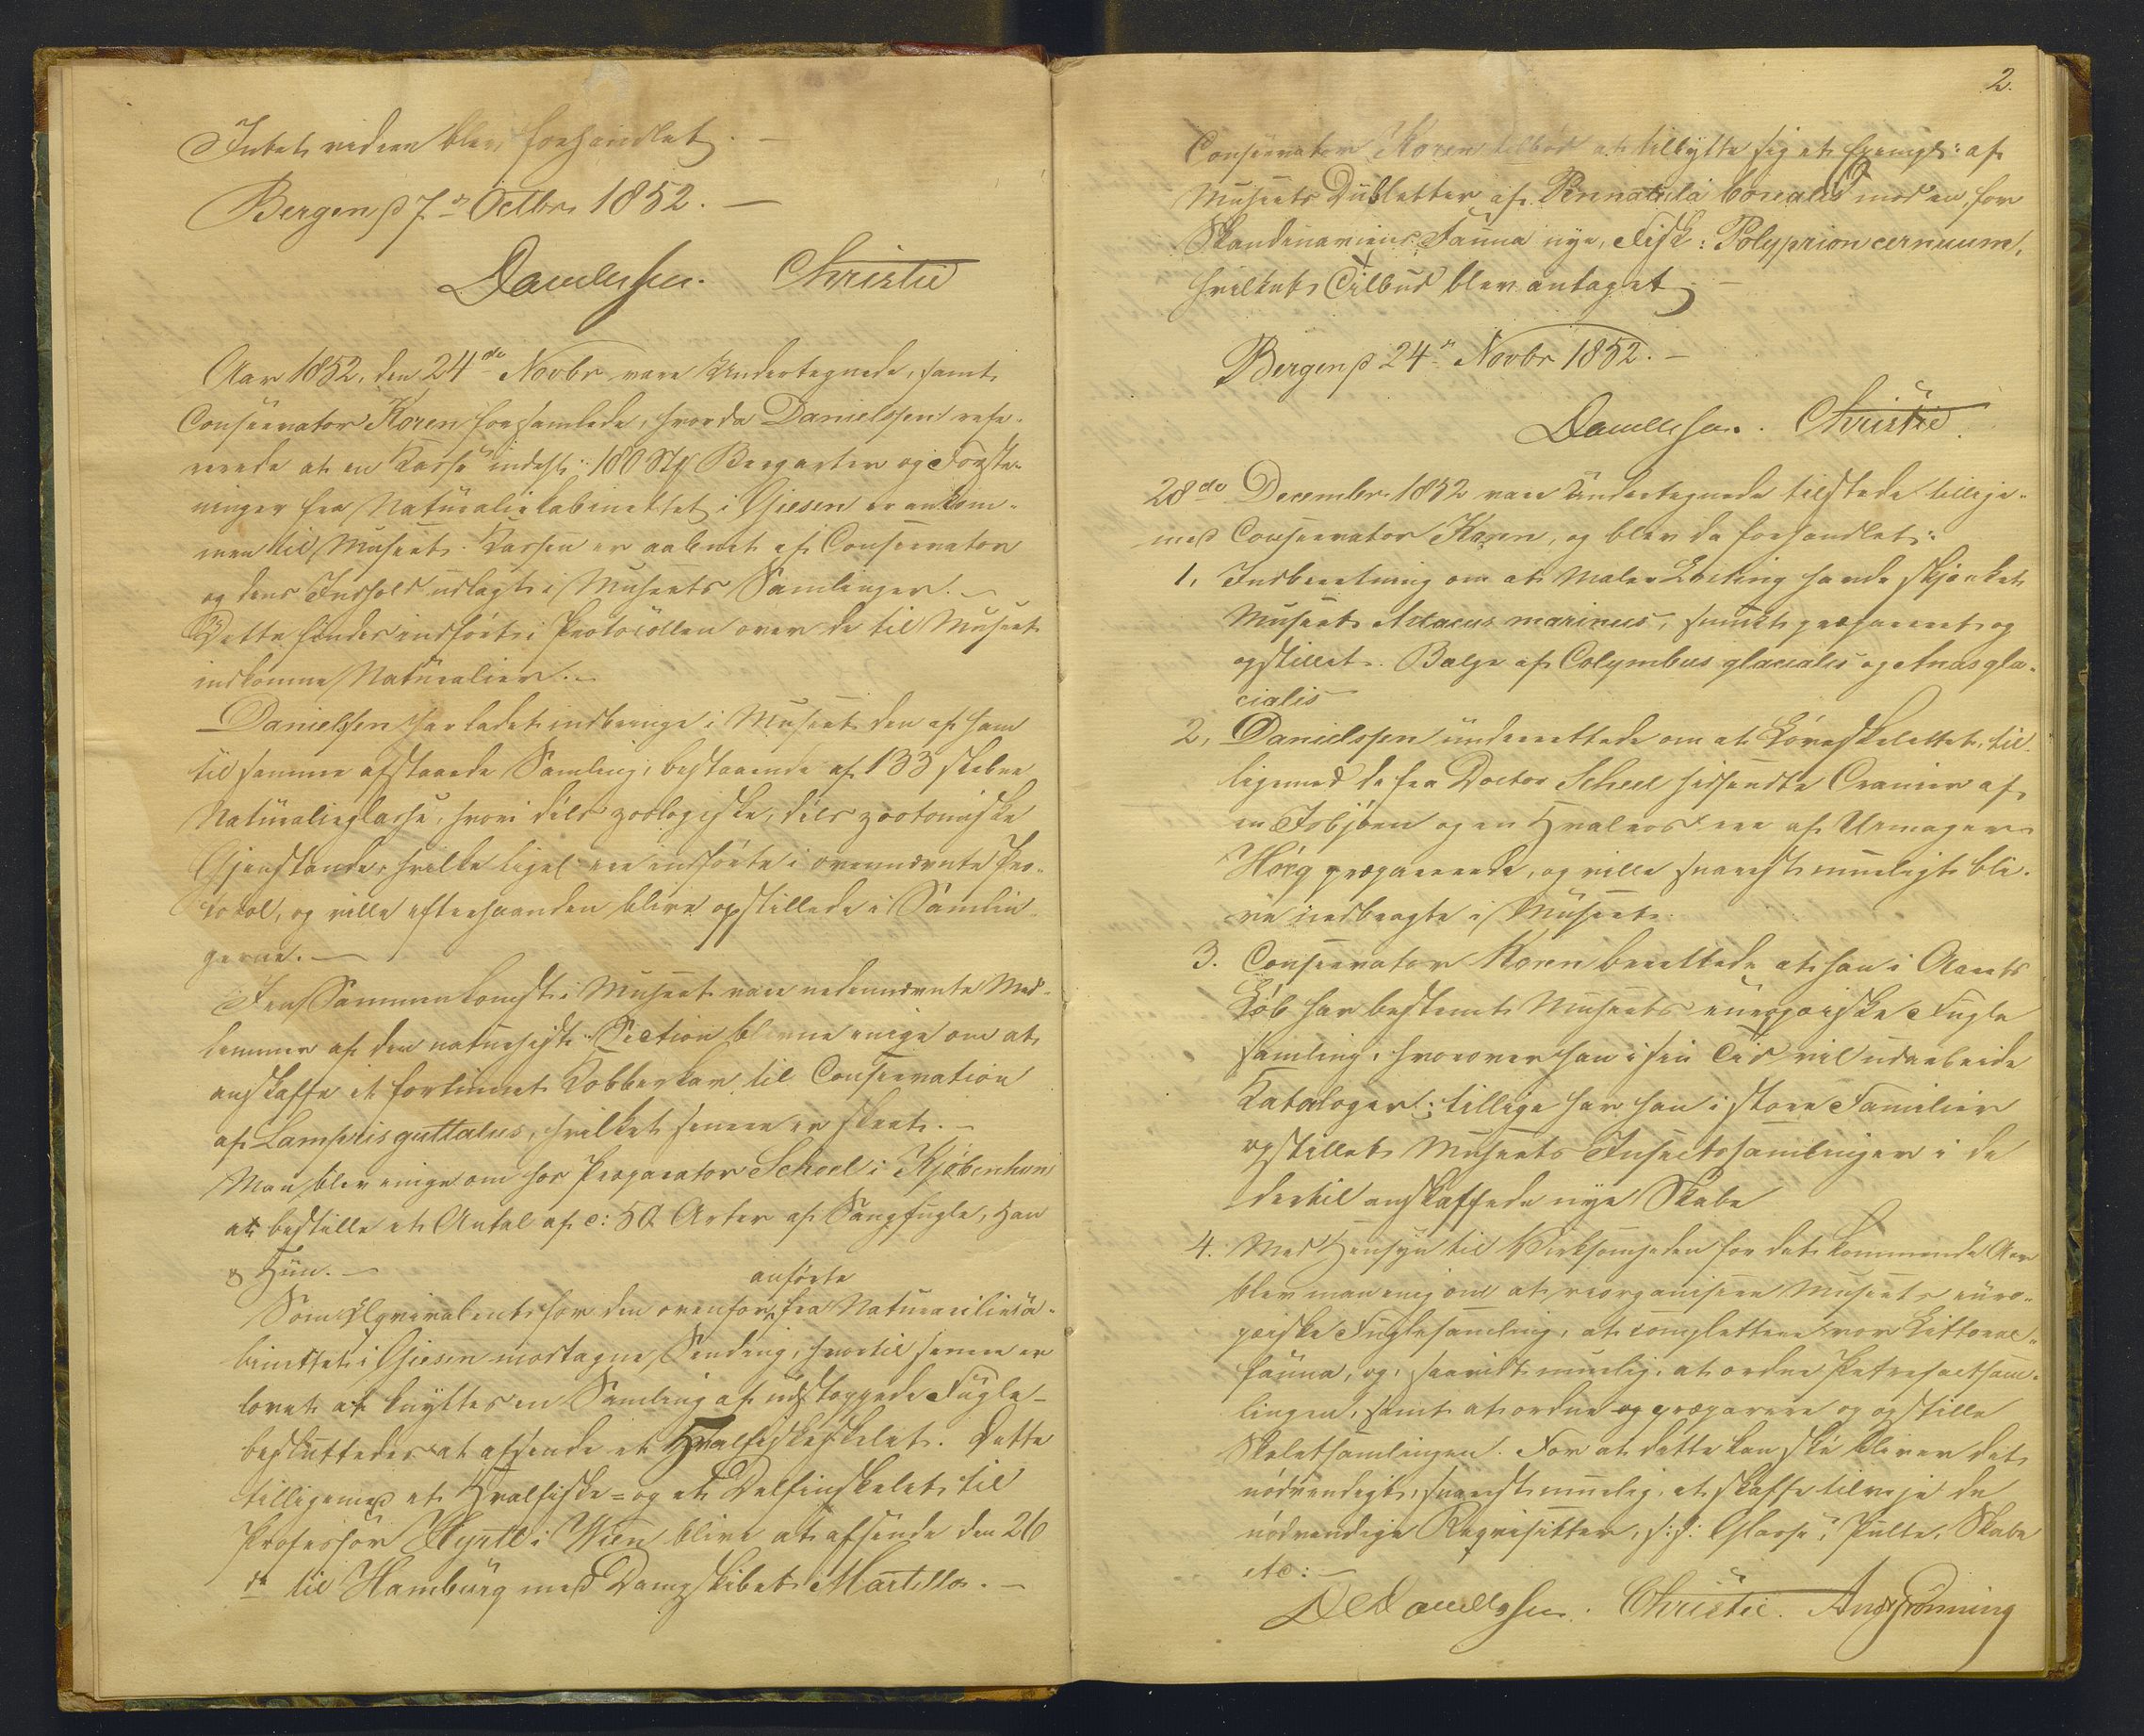 Intet videre blev forhandlet. —
Bergen p 7de Octbr 1852. —
Danielssen. Christie
Aar 1852, den 24de Novbr vare Undertegnede, samt
Conservator Koren forsamlede, hvorda Danielssen refe-
rerede at en Kasse indeh: 100 Stk Bergarter og Forste-
ninger fra Naturaliekabinettet i Giesen er ankom-
men til Museet. Kassen er aabnet af Conservator
og dens Indhold udlagt i Museets Samlinger. —
Dette findes indført i Protocollen over de til Museet
indkomne Naturalier. —
Danielssen har ladet indbringe i Museet den af ham
til samme afstaaede Samling, bestaaende af 133 slebne
Naturalieglasse, hvori dels zoologiske, dels zootomiske
Gjenstande, hvilke ligel ere indførte i ovennævnte Pro-
tocol, og ville efterhaanden blive opstillede i Samlin-
gerne. —
I en Sammenkomst i Museet vare nedennævnte Med-
lemmer af den naturhist: Section blevne enige om at
anskaffe et fortinnet Kobberkar til Conservation
af Lampris guttatus, hvilket senere er skeet. —
Man blev enige om hos Præparator Scheel i Kjøbenhavn
at bestille et Antal af c: 50 Arter af Sangfugle, Han
& Hun. —
anførte
Som Eqvivalent for den ovenfor fra Naturalieca-
binettet i Giesen modtagne Sending, hvortil senere er
lovet at knyttes en Samling af udstoppede Fugle —
besluttedes at afsende et Hvalfiskeskelet. Dette
tilligemed et Hvalfiske= og et Delfinskelet til
Professor Hyrtl i Wien blive at afsende den 26
de til Hamburg med Dampskibet Martello. —
2.
Conservator Koren tilbød at tilbytte sig et Exempl: af
Museets Dubletter af Pennatula borealis mod en, for
Skandinaviens Fauna nye, Fisk: Polyprion cernuum,
hvilket Tilbud blev antaget —
Bergen p 24de Novbr 1852. —
Danielssen. Christie.
28de December 1852 vare Undertegnede tilstede tillige-
med Conservator Koren, og blev da forhandlet:
1, Indberetning om at Maler Losting havde skjænket
Museet Astacus marinus, smukt præpareret og
opstillet. Balge af Colymbus glacialis og Anas gla-
cialis
2, Danielssen underrettede om at Løveskelettet, til-
ligemed de fra Doctor Scheel hidsendte Cranier af
en Isbjørn og en Hvalros ere af Urmager
Høeg præparerede, og ville snarest mueligt bli-
ve indbragte i Museet.
3. Conservator Koren berettede at han i Aarets
Løb har bestemt Museets europæiske Fugle
samling, hvorover han i sin Tid vil udarbeide
Kataloger; tillige har han i store Familier
opstillet Museets Insectsamlinger i de
dertil anskaffede nye Skabe
4. Med Hensyn til Virksomheden for det kommende Aar
blev man enig om at reorganisere Museets euro-
pæiske Fuglesamling, at complettere vor Littoral-
fauna, og, saavidt muelig, at ordne Petrefactsam-
lingen, samt at ordne og præparere og opstille
Skeletsamlingen. For at dette kan ske bliver det
nødvendigt, snarest muelig, at skaffe tilveje de
nødvendige Reqvisitter, s: s: Glasse, Pulte, Skabe
etc: —
DC Danielssen. Christie. And Grønning